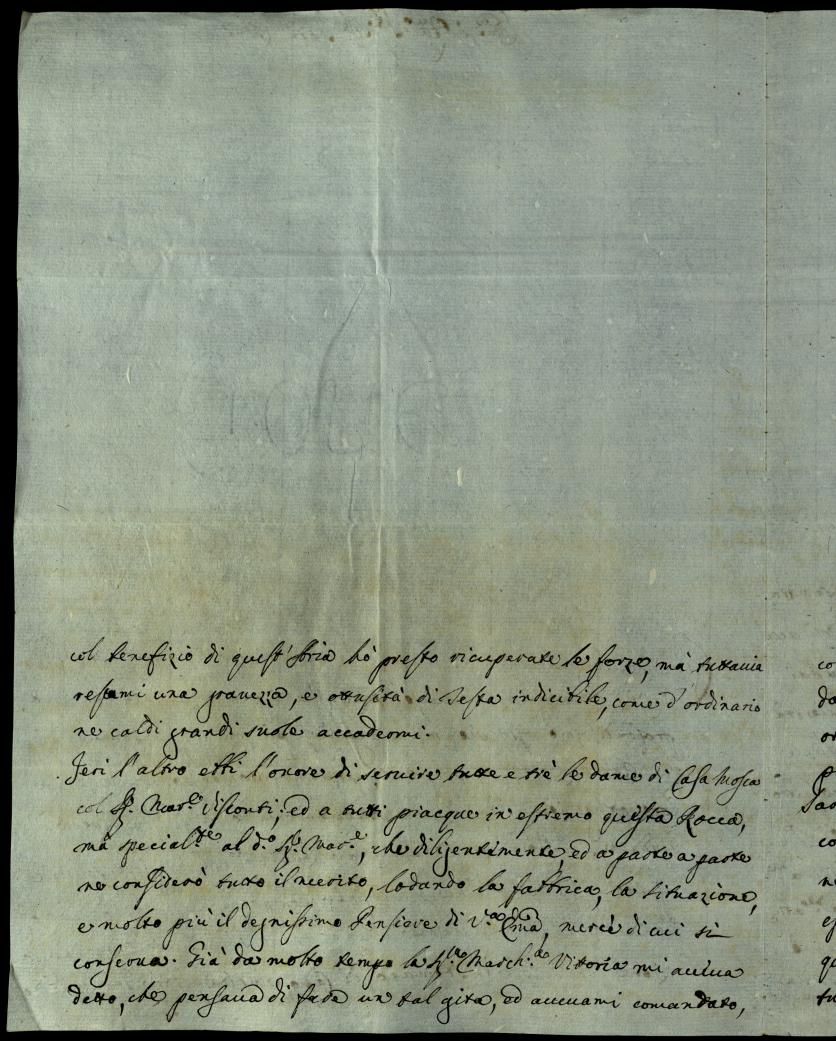 col benefizio di quest'Aria hò presto ricuperate le forze, mà tuttavia
restami una gravezza, e ottusità di Testa indicibile, come d'ordinario
ne caldi grandi suole accadermi.
Jeri l'altro ebbi l'onore di servire tutte e trè le dame di Casa Mosca
col Sig.r Mar.e Visconti; ed a tutti piacque in estremo questa Rocca,
mà special.te al d.o Sig.r Mar.e, che diligentemente ed a parte a parte
ne considerò tutto il merito, lodando la fabbrica, la situazione,
e molto più il degnissimo Pensiere di V.a Em̃a, mercè di cui si
conserva. Già da molto tempo la Sig.ra March.a Vittoria mi aveva
detto, che pensava di fare un tal gita, ed avevami comandato,
co
da
or
co
ne
qu
tu